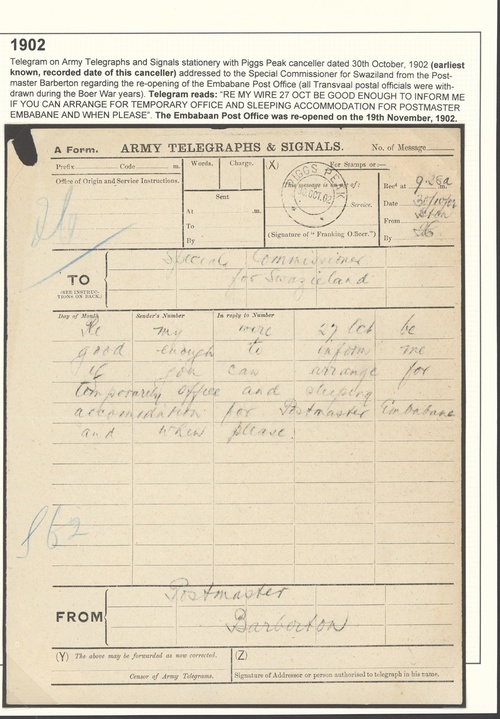 1902
Telegram on Army Telegraphs and Signals stationery with Piggs Peak canceller dated 30th October, 1902 (earliest
known, recorded date of this canceller) addressed to the Special Commissioner for Swaziland from the Post-
master Barberton regarding the re-opening of the Embabane Post Office (all Transvaal postal officials were with-
drawn during the Boer War years). Telegram reads: "RE MY WIRE 27 OCT BE GOOD ENOUGH TO INFORM ME
IF YOU CAN ARRANGE FOR TEMPORARY OFFICE AND SLEEPING ACCOMMODATION FOR POSTMASTER
EMBABANE AND WHEN PLEASE". The Embabaan Post Office was re-opened on the 19th November, 1902.
A Form. ARMY TELEGRAPHS & SIGNALS. No. of Message
Prefix Code m. Words. Charge. (X) For Stamps or
Office of Origin and Service Instructions.
PIGGS PEAK
This message is on of:
OCT. 02
Service.
(Signature of "Franking Officer.")
Sent
At .m.
To
By
Recd at 9-28a m.
Date 30/10/02
From
By
TO
(SEE INSTRUCTIONS ON BACK.)
Special Commissioner
for Swazieland
Day of Month Sender's Number In reply to Number
Re my wire 27 Oct be
good enough to inform me
if you can arrange for
temporarily office and sleeping
accomodation for Postmaster Embabane
and when please.
862
FROM
Postmaster
Barberton
(Y) The above may be forwarded as now corrected. (Z)
Censor of Army Telegrams. Signature of Addressor or person authorised to telegraph in his name.